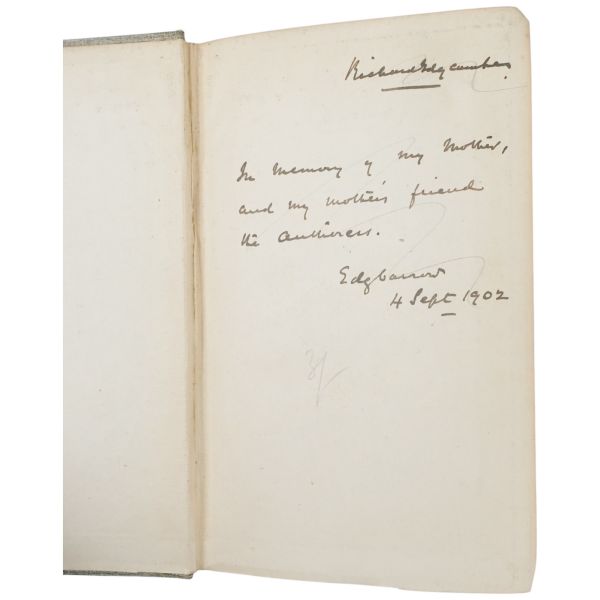 Richard Edgcumbe.
In memory of my Mother,
and my mother's friend
the Authoress.
Edgbarrow
4 Sept 1902
3/